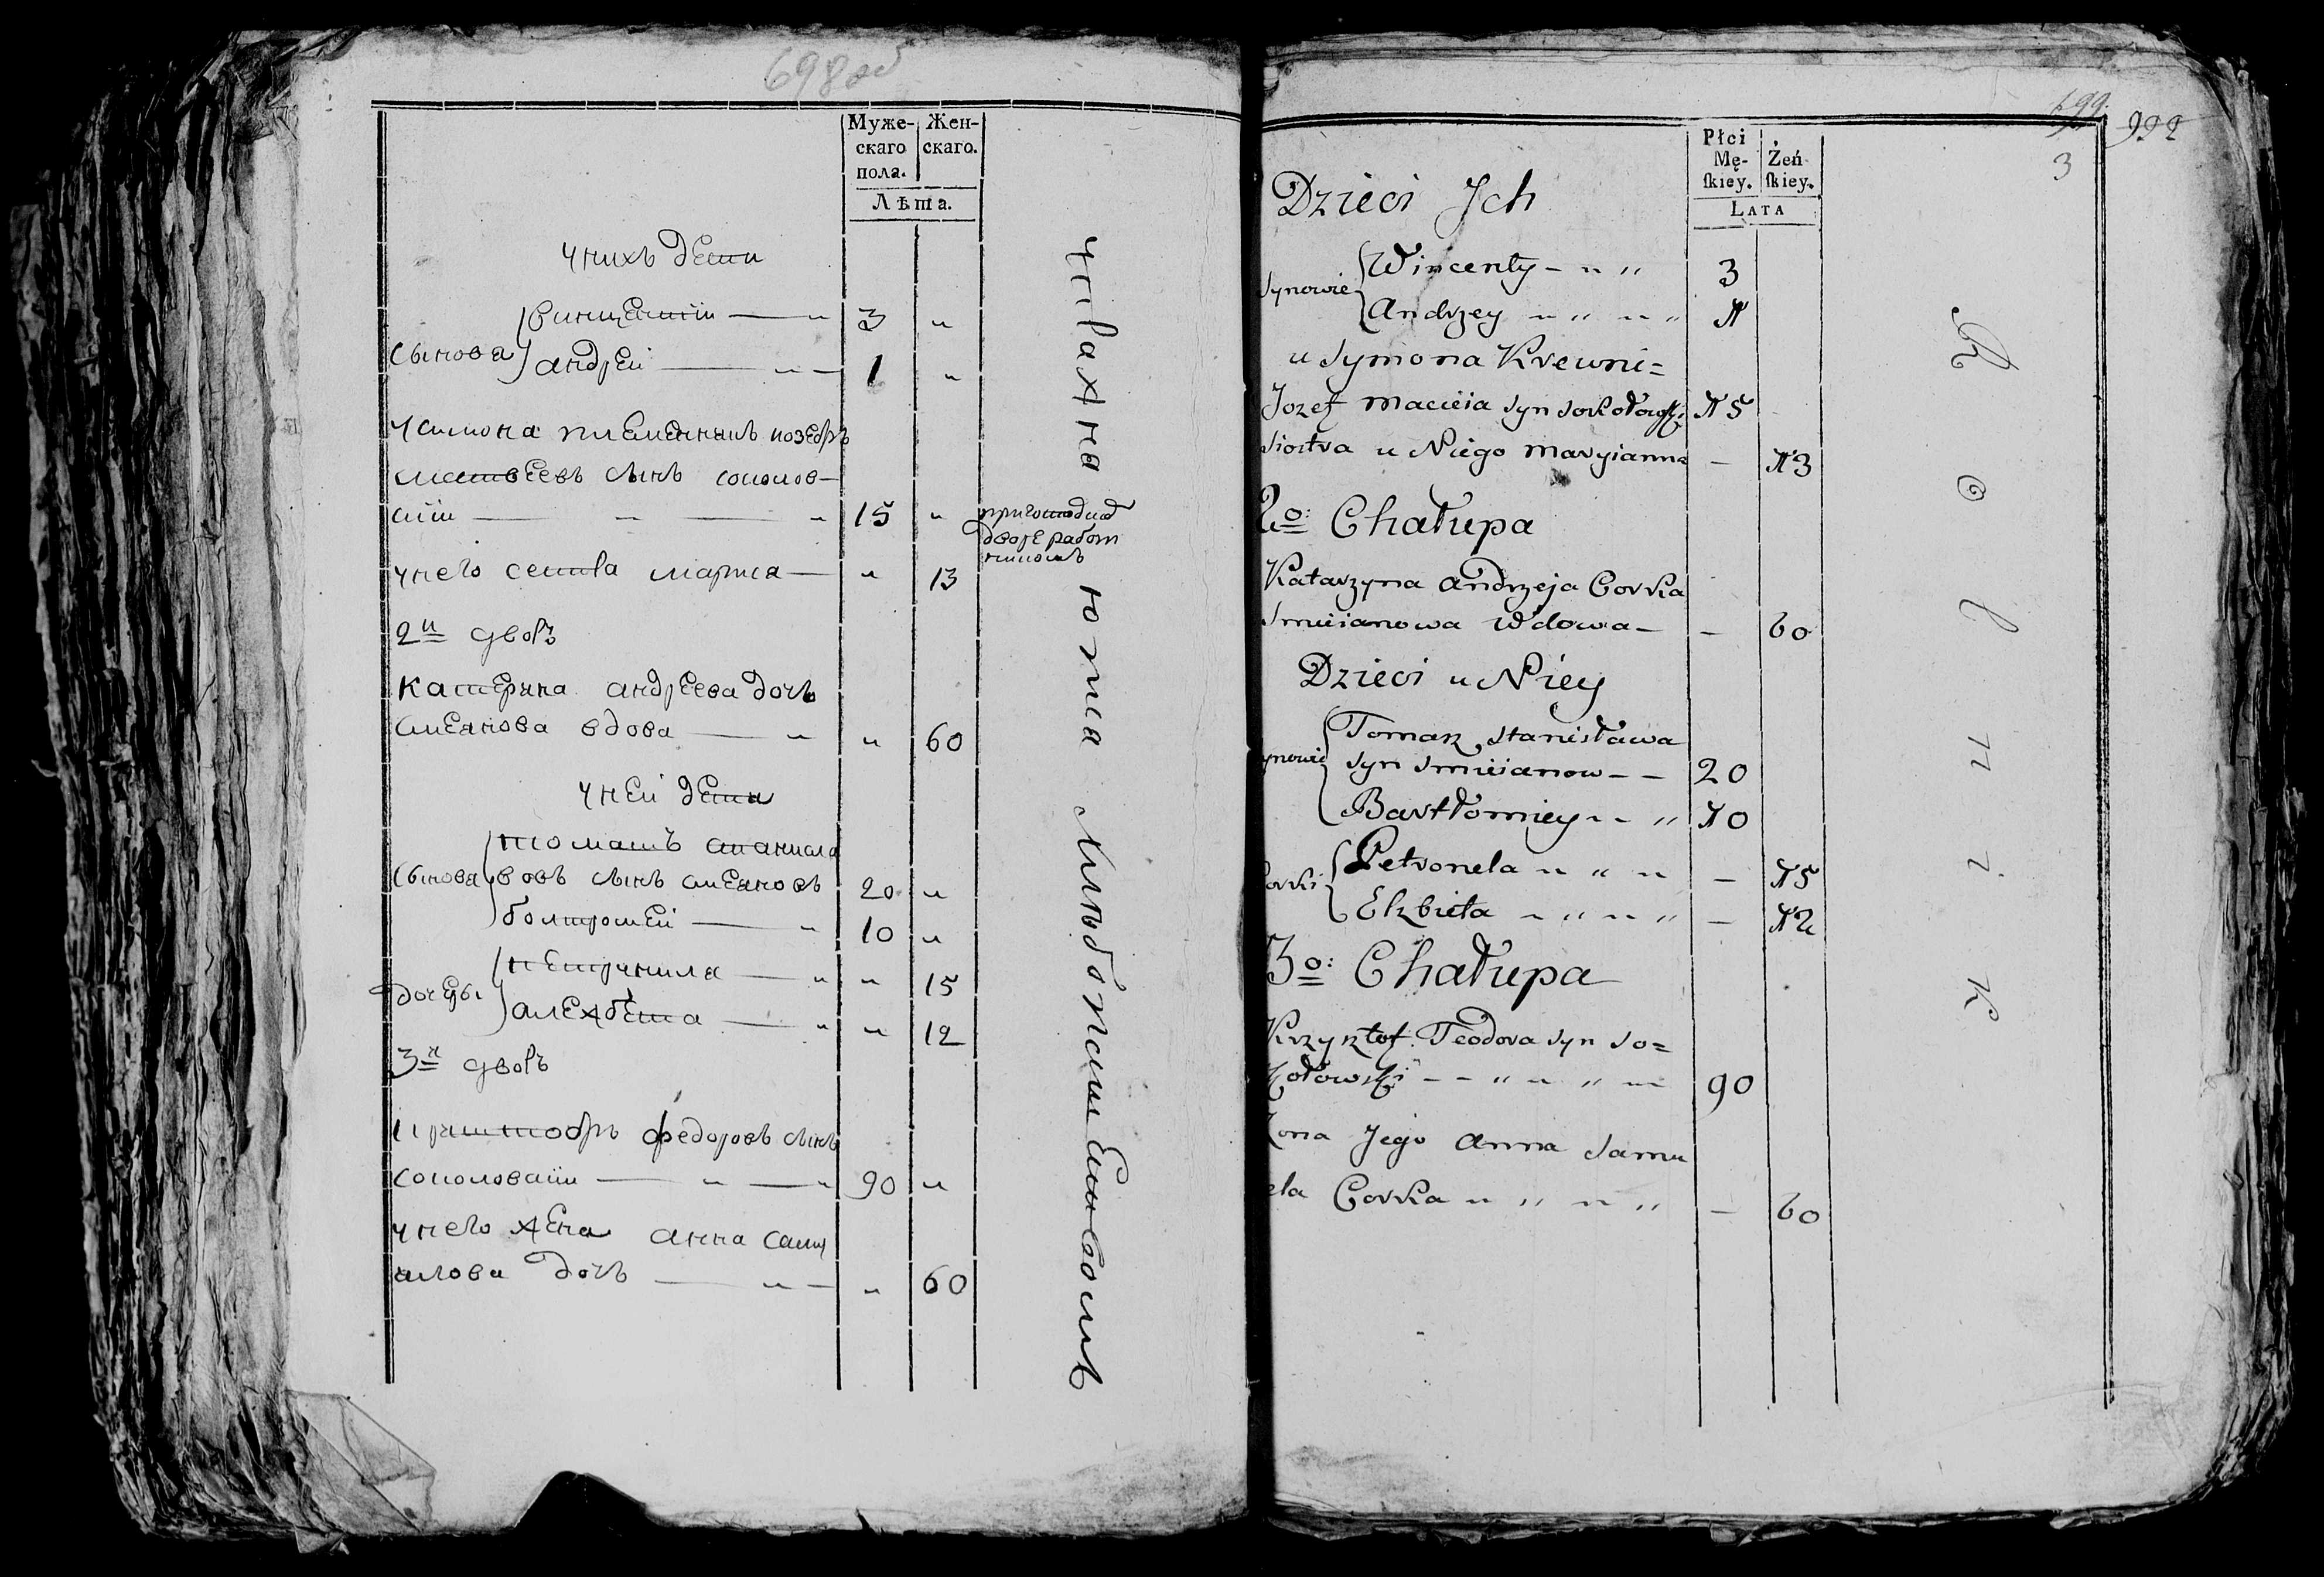 698 об
Муже-
скаго
пола.
Жен-
скаго.
Лѣта.
у них дети
сынова
винцентий — " 3 "
андрей — " — 1 "
у симона племенник иозефъ
матвеевъ сынъ соколов-
ский — " — " 15 "
у него сестра мариа — " 13
2й дворъ
катерина андреева дочь
смеянова вдова — " " 60
у ней дети
сынова
томашъ станисла
вовъ сынъ смеяновъ 20 "
болтромей — " 10 "
дочеры
петрунила — " " 15
алежбета — " " 12
3й дворъ
криштофъ федоровъ сынъ
соколовский — " — " 90 "
у него жена анна саму
илова дочь — " — " 60
работ
хлебопашеством
699.
992
3
Płci
Mę-
ſkiey.
Żeń-
ſkiey.
LATA
Dzieci Jch
Synowie
Wincenty – " " 3
Andrzey " " " " 1
u Symona Krewni=
Jozef Macieia Syn Sokołowski 15
Siostra u Niego Maryianna – 13
2o: Chałupa
Katarzyna Andrzeja Corka
Smieianowa Wdowa – – 60
Dzieci u Niey
Synowie
Tomasz, Stanisława
Syn Smieianow – – 20
Bartłomiey " – " 10
Corki
Petronela " " " – 15
Elzbieta " " " " – 12
3o: Chałupa
Krzysztof Teodora Syn So=
kołowski – – " " " " 90
Zona Jego Anna Samu
ela Corka " " " " – 60
R o l n i k